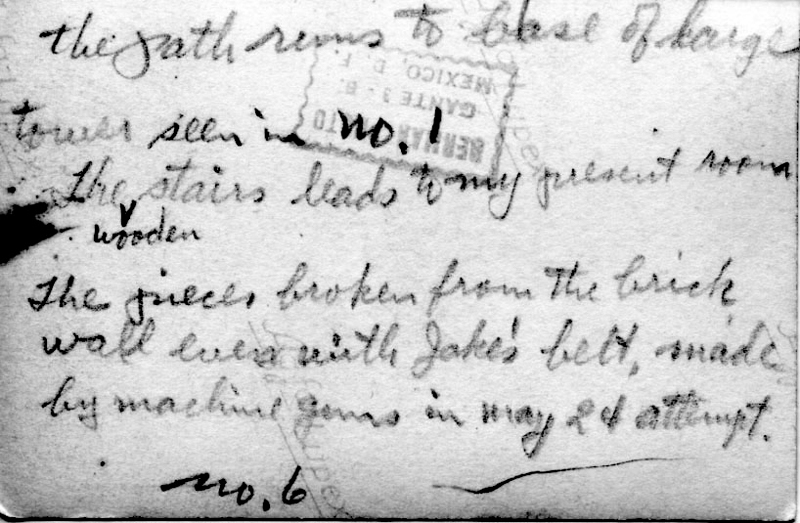 the path runs to base of large
tower seen in no. 1
The stairs leads to my present room
wooden
The pieces broken from the brick
wall even with Jake's belt, made
by machine guns in may 24 attempt.
no. 6
MEXICO, D. F.
GANTE 3 - B.